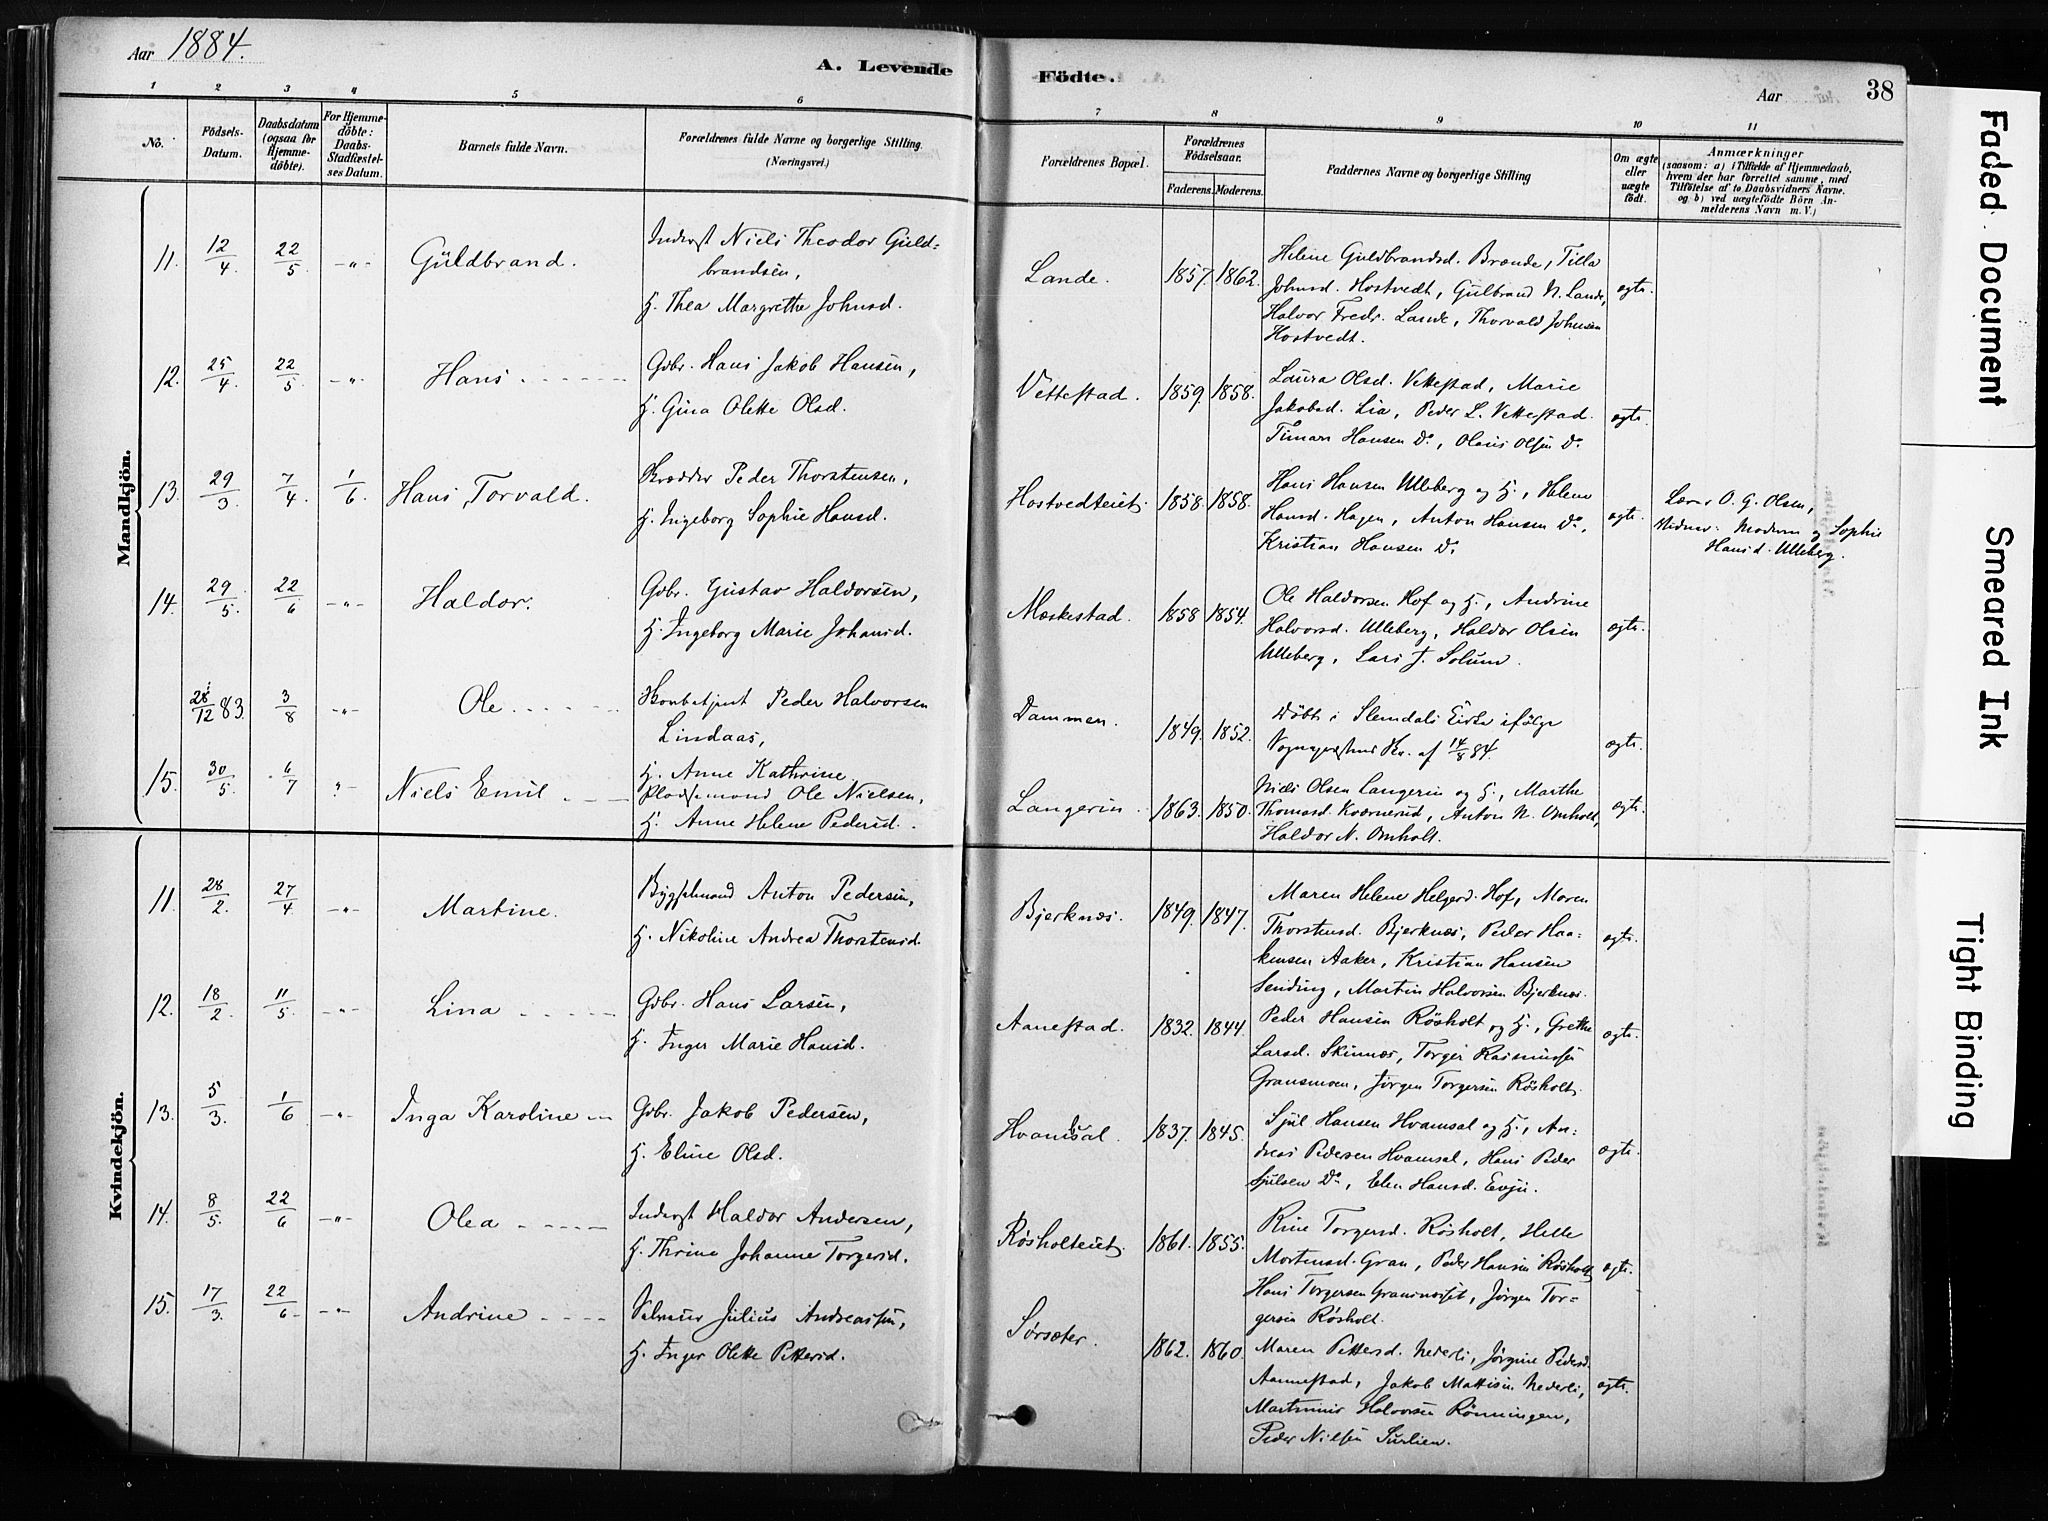 Aar 1884.
A. Levende Födte.
Aar 38
1 2 3 4 5 6 7 8 9 10 11
No.
Födsels-Datum.
Daabsdatum (ogsaa for Hjemmedöbte).
For Hjemmedöbte: Daabs-Stadfæstelses Datum.
Barnets fulde Navn.
Forældrenes fulde Navne og borgerlige Stilling.
(Næringsvei.)
Forældrenes Bopæl.
Forældrenes Födselsaar.
Faderens. Moderens.
Faddernes Navne og borgerlige Stilling
Om ægte eller uægte födt.
Anmærkninger
(saasom: a) i Tilfælde af Hjemmedaab, hvem der har forrettet samme, med Tilföielse af to Daabsvidners Navne. og b) ved uægtefödte Börn Anmelderens Navn m. V.)
Mandkjön.
11. 12/4 22/5 -"- Guldbrand.
Inderst Niels Theodor Guld-
brandsen,
H. Thea Margrethe Johnsd.
Lande. 1857. 1862.
Helene Guldbrandsd. Brænde, Tilla
Johnsd. Hostvedt, Gulbrand N. Lande,
Halvor Fredr. Lande, Thorvald Johnsen
Hostvedt.
ægte.
12. 25/4 22/5 -"- Hans
Gdbr. Hans Jakob Hansen,
H. Gina Olette Olsd.
Vettestad. 1859. 1858.
Laura Olsd. Vettestad, Marie
Jakobsd. Lia, Peder L. Vettestad.
Timan Hansen Do, Olaus Olsen Do
ægte.
13. 29/3 7/4 1/6 Hans Torvald.
Skrædder Peder Thorstensen,
H. Ingeborg Sophie Hansd.
Hostvedteiet. 1858. 1858.
Hans Hansen Ulleberg og H., Helene
Hansd. Hagen, Anton Hansen Do,
Kristian Hansen Do
ægte.
Lærer O. G. Olsen,
Vidner: Modern og Sophie
Hansd. Ulleberg.
14. 29/5 22/6 -"- Haldor.
Gdbr. Gustav Haldorsen,
H. Ingeborg Marie Johansd.
Mæskestad. 1858 1854.
Ole Haldorsen Hof og H., Andrine
Halvorsd. Ulleberg, Haldor Olsen
Ulleberg, Lars J. Solum.
ægte.
28/12 83. 3/8 -"- Ole
Peder Halvorsen
Lindaas,
H. Anne Kathrine
Dammen. 1849. 1852.
Döbt i Slemdals Kirke ifölge
Sogneprestens Skr. af 14/8 84.
ægte.
15. 30/5 6/7 -"- Niels Emil
Pladsemand Ole Nielsen,
H. Anne Helene Pedersd.
Langerin. 1863. 1850.
Niels Olsen Langerin og H., Marthe
Thomasd. Kværnerud, Anton N. Omholt,
Haldor N. Omholt.
ægte.
Kvindekjön.
11. 28/2 27/4 -"- Martine.
Bygselmand Anton Pedersen,
H. Nikoline Andrea Thorstensd.
Bjerknæs. 1849. 1847.
Maren Helene Helgesd. Hof, Maren
Thorstensd. Bjerknæs, Peder Haa-
kensen Aaker, Kristian Hansen
Sending, Martin Halvorsen Bjerknæs.
ægte.
12. 18/2 11/5 -"- Lina
Gdbr. Hans Larsen,
H. Inger Marie Hansd.
Aanestad. 1832. 1844.
Peder Hansen Rösholt og H., Grethe
Larsd. Skinnæs, Torger Rasmussen
Gransmoen, Jörgen Torgersen Rösholt.
ægte.
13. 5/3 1/6 -"- Inga Karoline
Gdbr. Jakob Pedersen,
H. Eline Olsd.
Hvamsal. 1837. 1845.
Sjul Hansen Hvamsal og H., An-
dreas Pedersen Hvamsal, Hans Peder
Sjulsen Do, Elen Hansd. Evju.
ægte.
14. 8/5 22/6 -"- Olea
Inderst Haldor Andersen,
H. Thrine Johanne Torgersd.
Rösholteiet. 1861. 1855.
Rine Torgersd. Rösholt, Helle
Mortensd. Gran, Peder Hansen Rösholt
Hans Torgersen Gransneset, Jörgen Tor-
gersen Rösholt.
ægte.
15. 17/3 22/6 -"- Andrine
Selveier Julius Andreassen,
H. Inger Olette Pettersd.
Sörsæter. 1862. 1860.
Maren Pettersd. Nederli, Jörgine Pedersd.
Aannestad, Jakob Mattisen Nederli,
Martinius Halvorsen Rönningen,
Peder Nilsen Surlien.
ægte.
Faded Document
Smeared Ink
Tight Binding